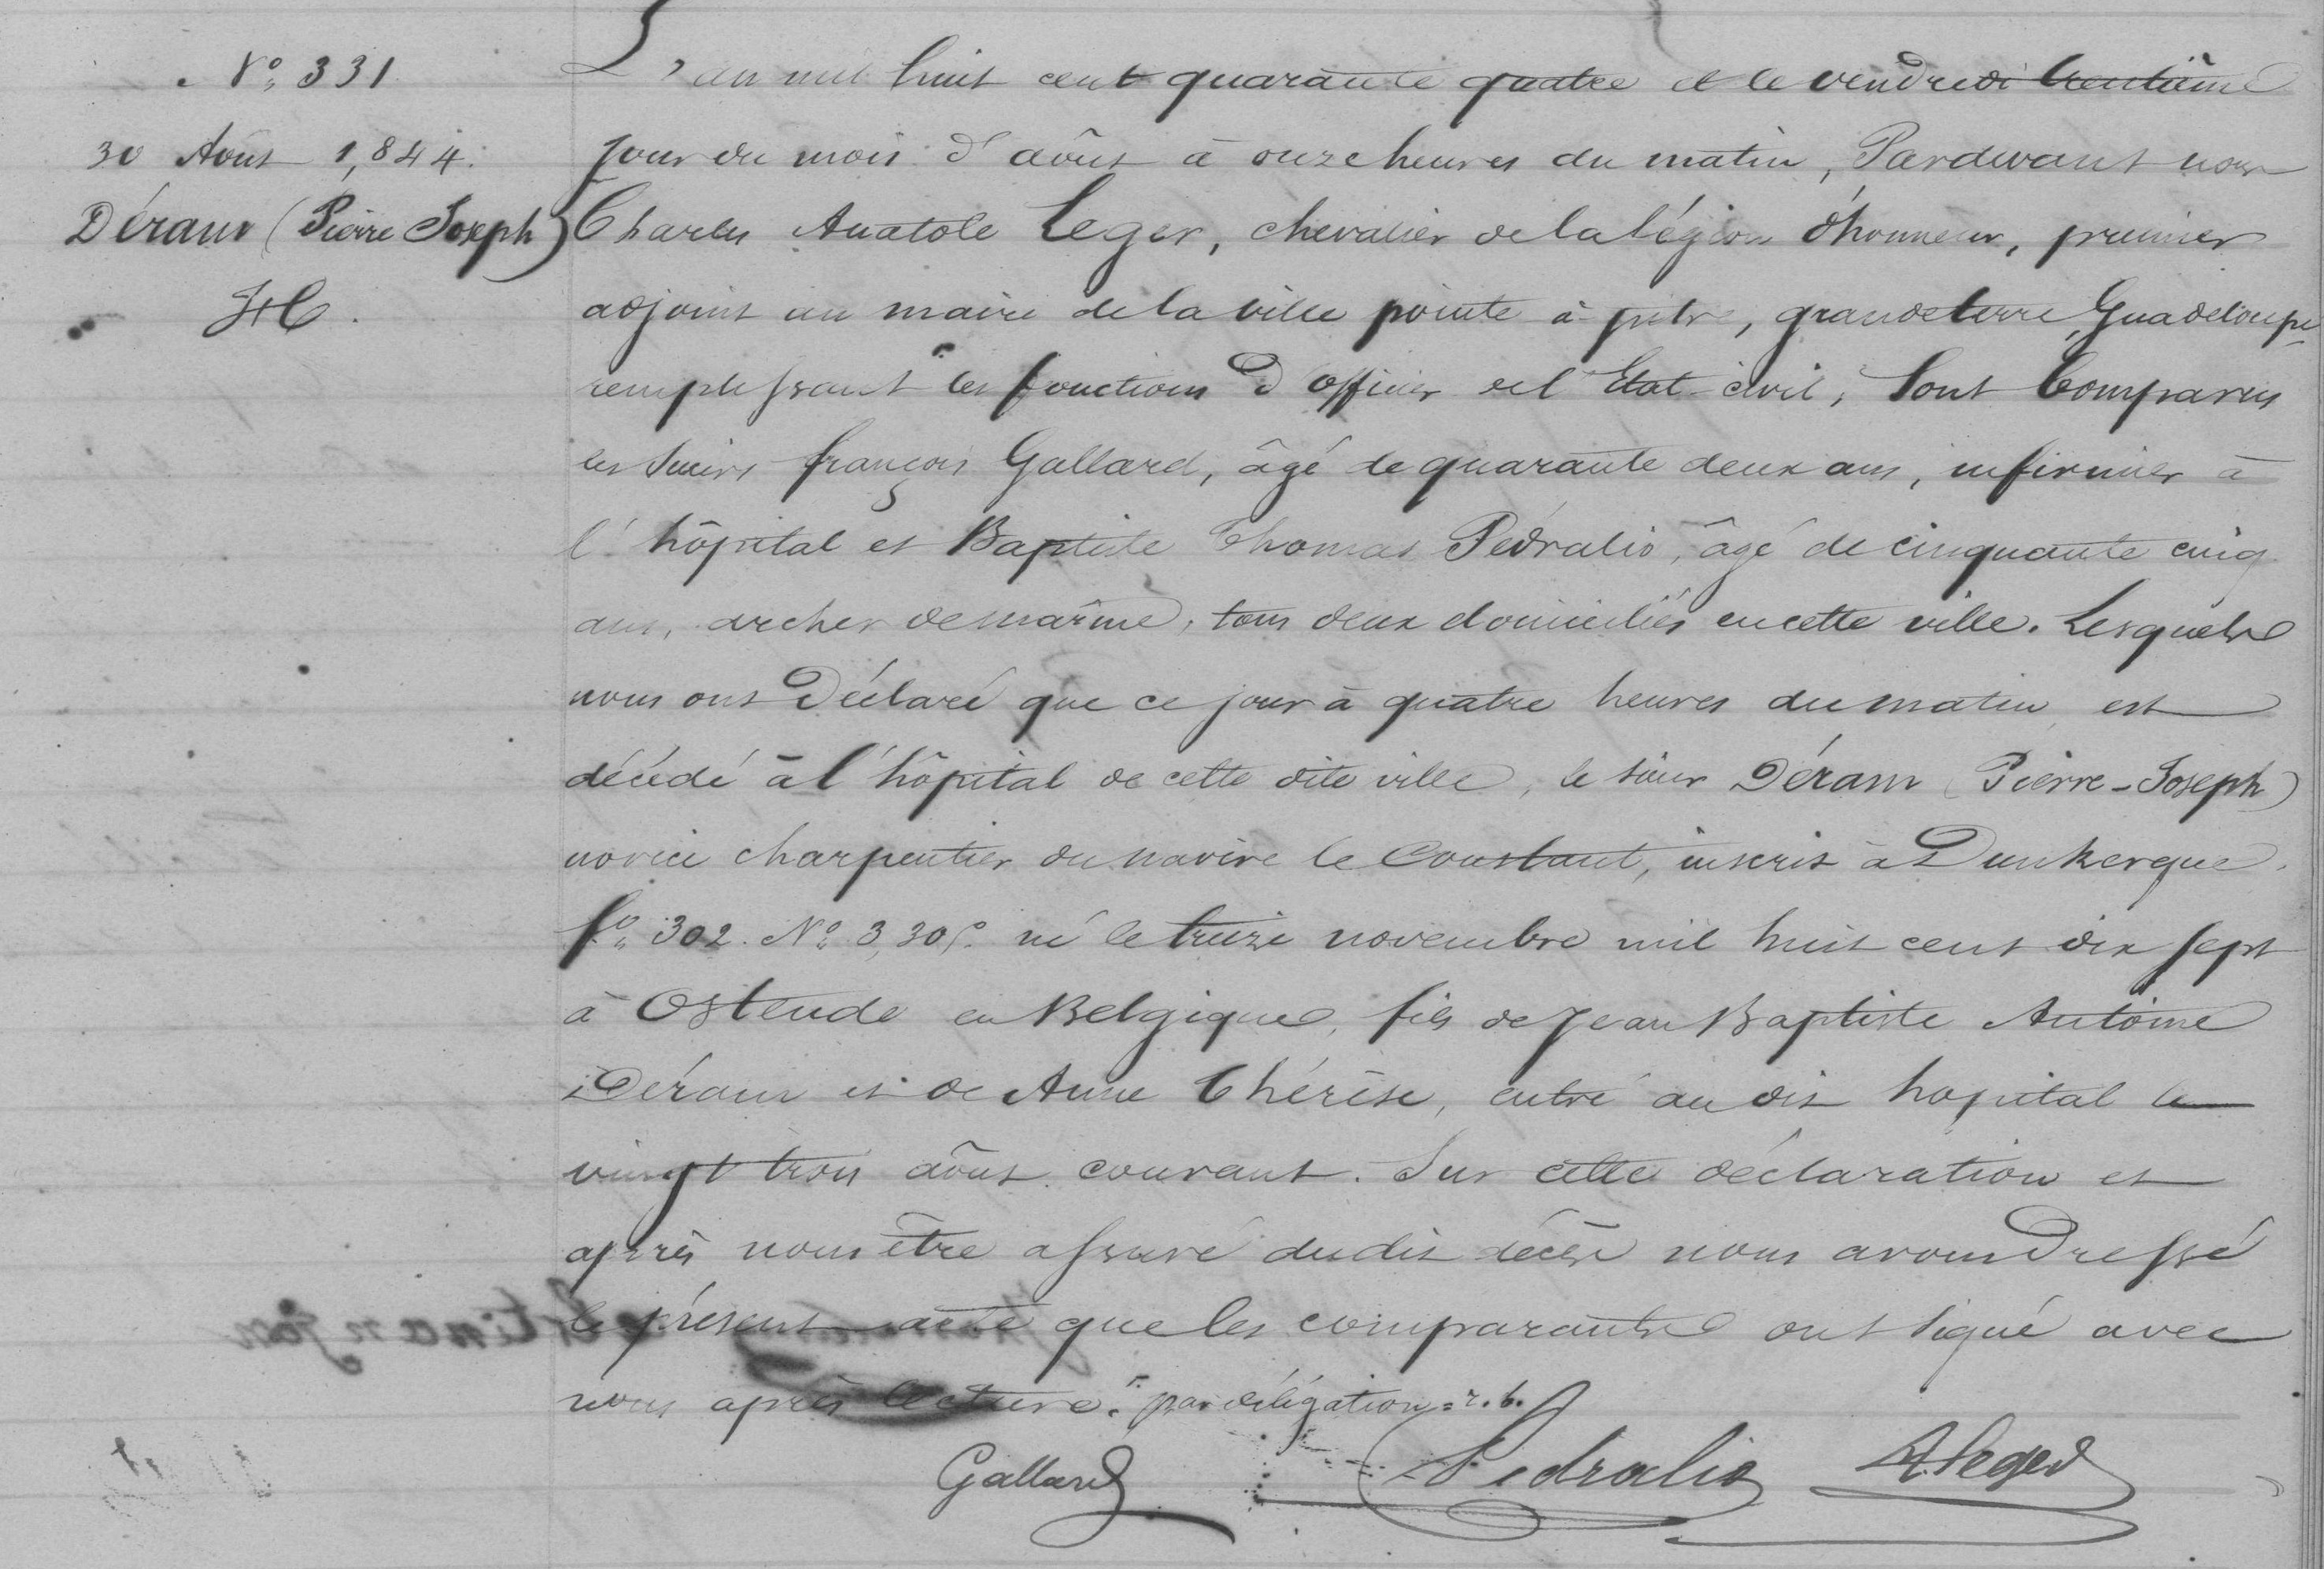 N° 331
30 Août 1,844.
Déram (Pierre Joseph)
L'an mil huit cent quarante quatre et le vendredi trentième
jour du mois d'août à onze heures du matin, Pardevant nous
Charles Anatole Leger, chevalier de la légion d'honneur, premier
adjoint au maire de la ville pointe à pitre, grande terre, Guadeloupe
remplissant les fonctions d'officier de l'Etat civil, Sont Comparus
les Sieurs françois Gallard, âgé de quarante deux ans, infirmier à
l'hôpital et Baptiste Thomas Pédralio, âgé de cinquante cinq
ans, archer de marine, tous deux domiciliés en cette ville. Lesquels
nous ont Déclaré que ce jour à quatre heures du matin est
décédé à l'hôpital de cette dite ville, le sieur Déram (Pierre-Joseph)
novice charpentier du navire le Constant, inscrit à Dunkerque.
f° 302. N° né le treize novembre mil huit cent dix sept
à Ostende en Belgique, fils de Jean Baptiste Antoine
Déram et de Anne Thérèse, entré au dit hopital le
vingt trois août courant. Sur cette déclaration et
après nous être assuré dudit décès nous avons Dressé
le présent acte que les comparants ont signé avec
nous après lecture. par délégation = r. b.
Gallard Pedralio A. Leger